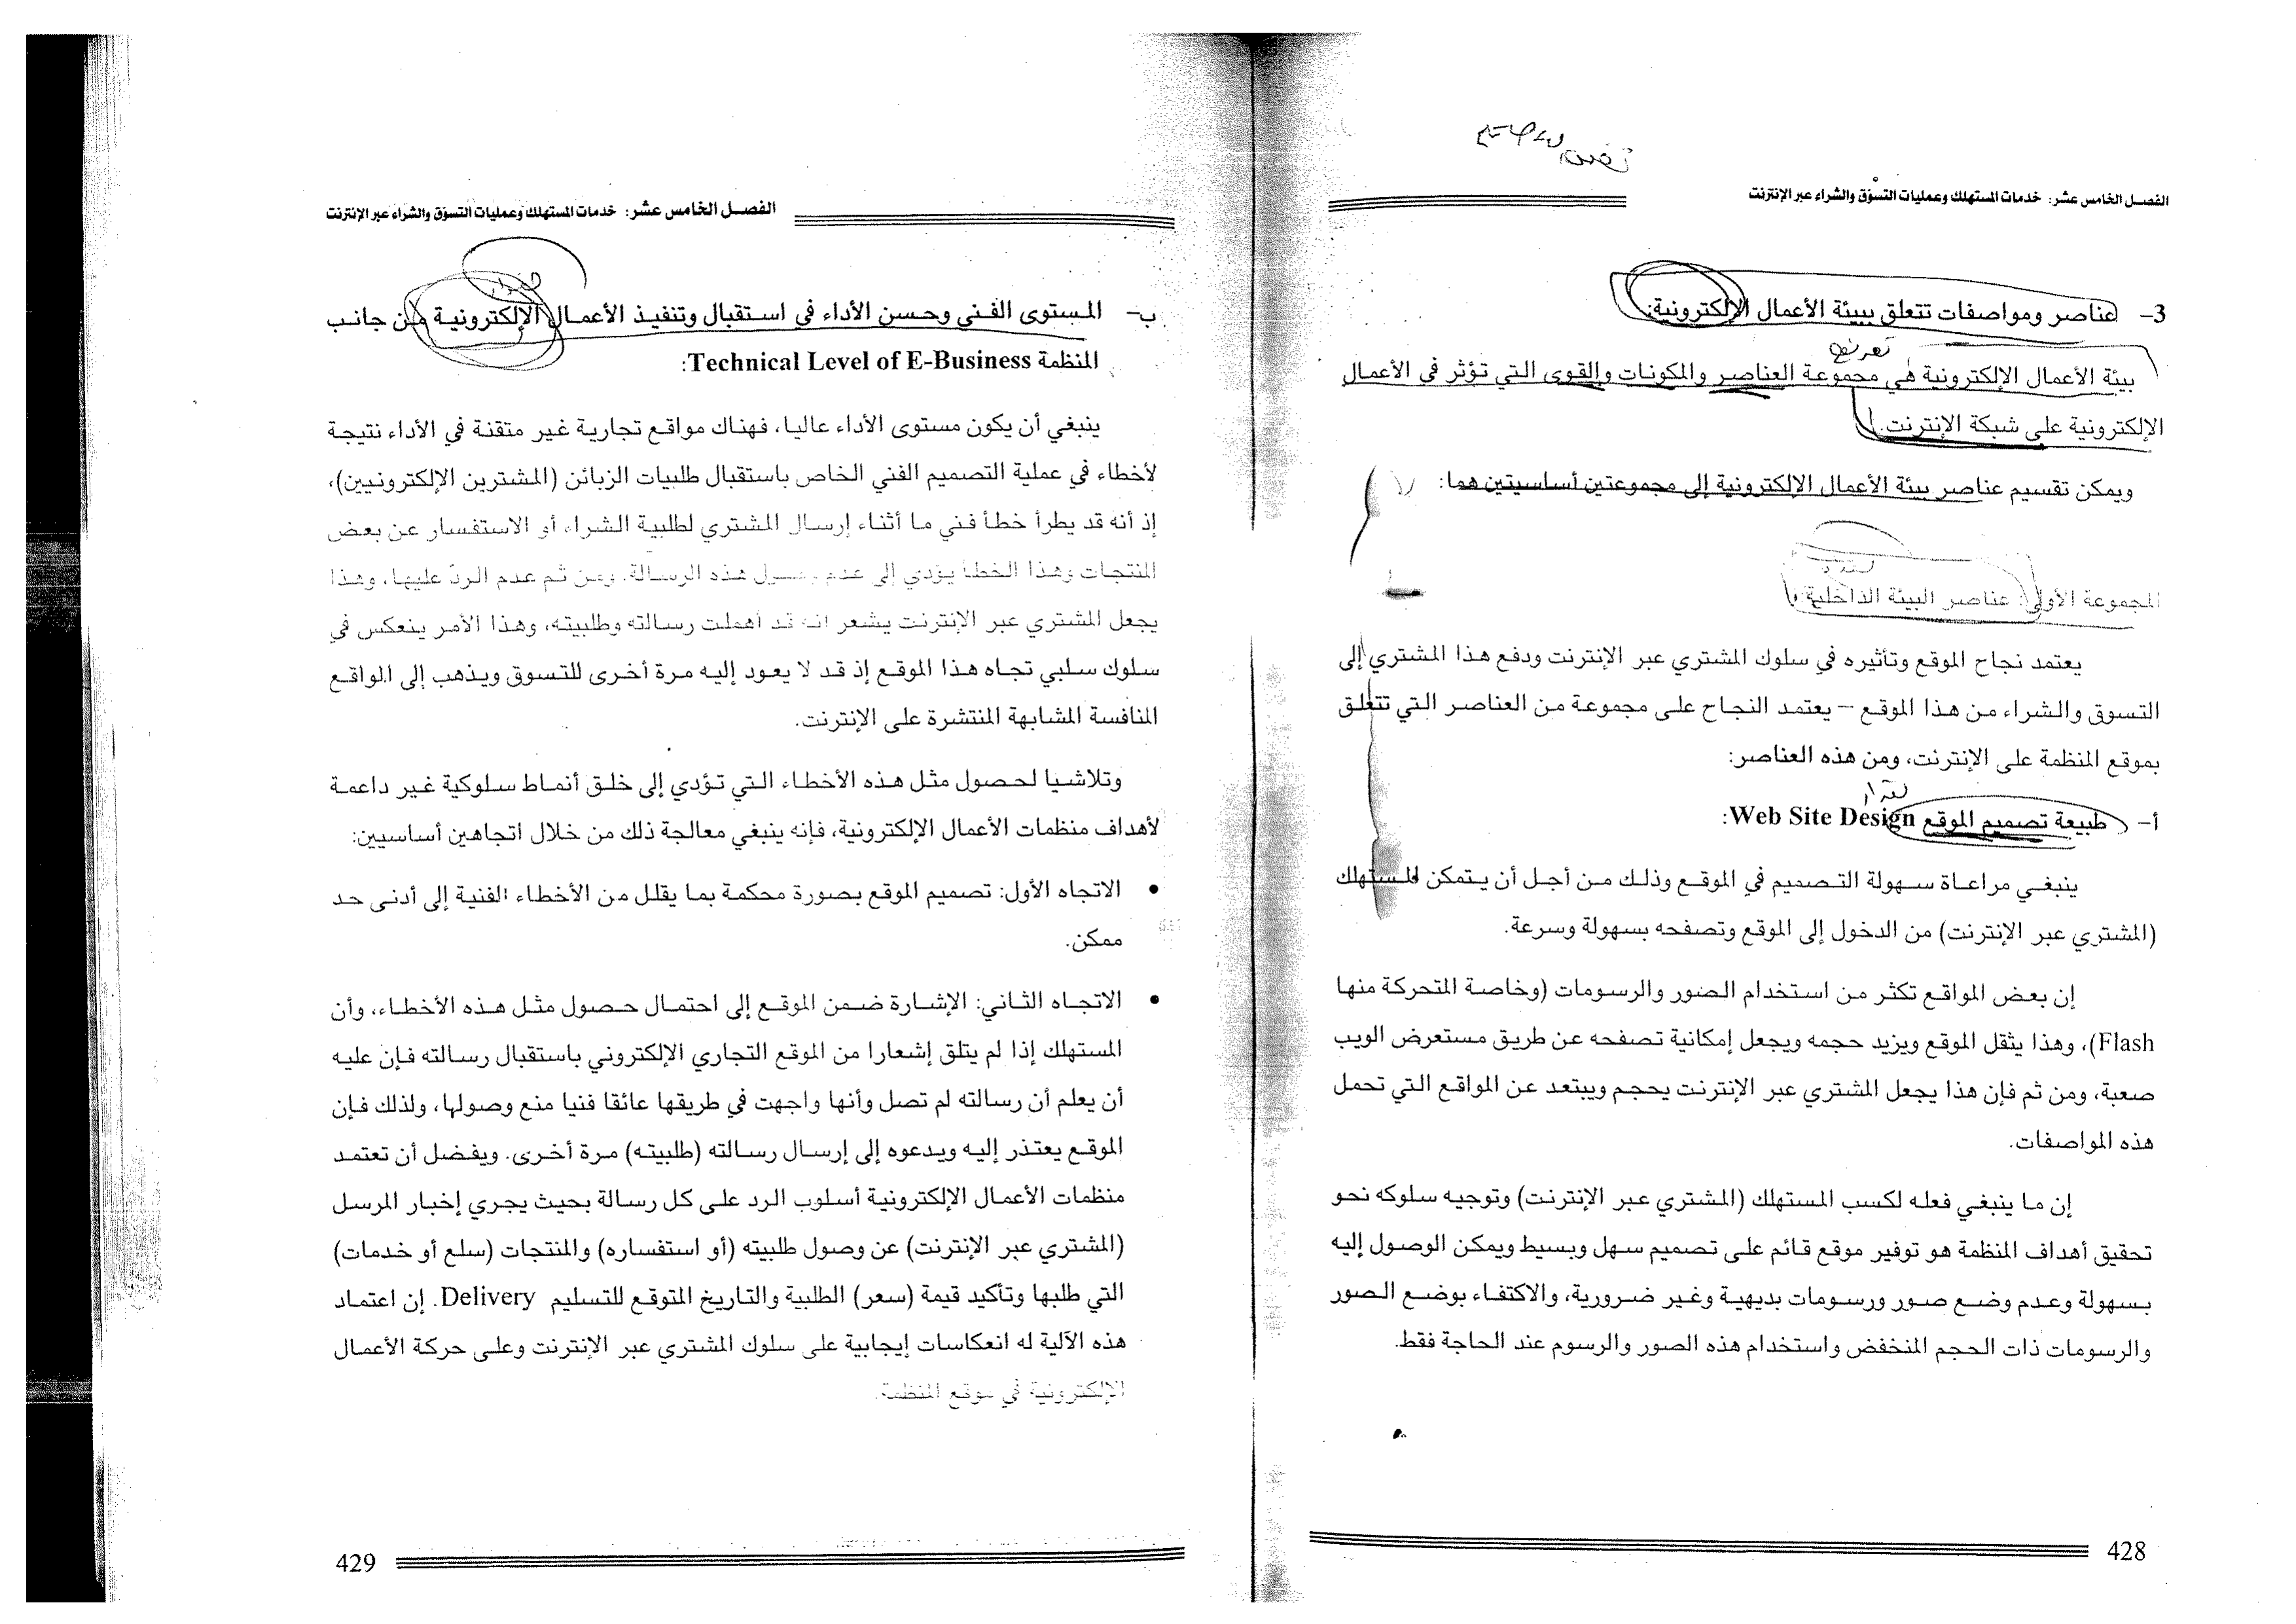 الفصل الخامس عشر: خدمات المستهلك وعمليات التسوّق والشراء عبر الإنترنت
3- عناصر ومواصفات تتعلق ببيئة الأعمال الإلكترونية:
تعريف
بيئة الأعمال الإلكترونية هي مجموعة العناصر والمكونات والقوى التي تؤثر في الأعمال
الإلكترونية على شبكة الإنترنت.
ويمكن تقسيم عناصر بيئة الأعمال الإلكترونية إلى مجموعتين أساسيتين هما:
المجموعة الأولى: عناصر البيئة الداخلية:
يعتمد نجاح الموقع وتأثيره في سلوك المشتري عبر الإنترنت ودفع هذا المشتري إلى
التسوق والشراء من هذا الموقع – يعتمد النجاح على مجموعة من العناصر التي تتعلق
بموقع المنظمة على الإنترنت، ومن هذه العناصر:
أ- طبيعة تصميم الموقع Web Site Design:
ينبغي مراعاة سهولة التصميم في الموقع وذلك من أجل أن يتمكن المستهلك
(المشتري عبر الإنترنت) من الدخول إلى الموقع وتصفحه بسهولة وسرعة.
إن بعض المواقع تكثر من استخدام الصور والرسومات (وخاصة المتحركة منها
Flash)، وهذا يثقل الموقع ويزيد حجمه ويجعل إمكانية تصفحه عن طريق مستعرض الويب
صعبة، ومن ثم فإن هذا يجعل المشتري عبر الإنترنت يحجم ويبتعد عن المواقع التي تحمل
هذه المواصفات.
إن ما ينبغي فعله لكسب المستهلك (المشتري عبر الإنترنت) وتوجيه سلوكه نحو
تحقيق أهداف المنظمة هو توفير موقع قائم على تصميم سهل وبسيط ويمكن الوصول إليه
بسهولة وعدم وضع صور ورسومات بديهية وغير ضرورية، والاكتفاء بوضع الصور
والرسومات ذات الحجم المنخفض واستخدام هذه الصور والرسوم عند الحاجة فقط.
428
الفصل الخامس عشر: خدمات المستهلك وعمليات التسوّق والشراء عبر الإنترنت
ب- المستوى الفني وحسن الأداء في استقبال وتنفيذ الأعمال الإلكترونية من جانب
المنظمة Technical Level of E-Business:
ينبغي أن يكون مستوى الأداء عاليا، فهناك مواقع تجارية غير متقنة في الأداء نتيجة
لأخطاء في عملية التصميم الفني الخاص باستقبال طلبيات الزبائن (المشترين الإلكترونيين)،
إذ أنه قد يطرأ خطأ فني ما أثناء إرسال المشتري لطلبية الشراء أو الاستفسار عن بعض
المنتجات وهذا الخطأ يؤدي إلى عدم وصول هذه الرسالة. ومن ثم عدم الردّ عليها، وهذا
يجعل المشتري عبر الإنترنت يشعر أنه قد أهملت رسالته وطلبيته، وهذا الأمر ينعكس في
سلوك سلبي تجاه هذا الموقع إذ قد لا يعود إليه مرة أخرى للتسوق ويذهب إلى المواقع
المنافسة المشابهة المنتشرة على الإنترنت.
وتلاشيا لحصول مثل هذه الأخطاء التي تؤدي إلى خلق أنماط سلوكية غير داعمة
لأهداف منظمات الأعمال الإلكترونية، فإنه ينبغي معالجة ذلك من خلال اتجاهين أساسيين:
• الاتجاه الأول: تصميم الموقع بصورة محكمة بما يقلل من الأخطاء الفنية إلى أدنى حد
ممكن.
• الاتجاه الثاني: الإشارة ضمن الموقع إلى احتمال حصول مثل هذه الأخطاء، وأن
المستهلك إذا لم يتلق إشعارا من الموقع التجاري الإلكتروني باستقبال رسالته فإن عليه
أن يعلم أن رسالته لم تصل وأنها واجهت في طريقها عائقا فنيا منع وصولها، ولذلك فإن
الموقع يعتذر إليه ويدعوه إلى إرسال رسالته (طلبيته) مرة أخرى. ويفضل أن تعتمد
منظمات الأعمال الإلكترونية أسلوب الرد على كل رسالة بحيث يجري إخبار المرسل
(المشتري عبر الإنترنت) عن وصول طلبيته (أو استفساره) والمنتجات (سلع أو خدمات)
التي طلبها وتأكيد قيمة (سعر) الطلبية والتاريخ المتوقع للتسليم Delivery. إن اعتماد
هذه الآلية له انعكاسات إيجابية على سلوك المشتري عبر الإنترنت وعلى حركة الأعمال
الإلكترونية في موقع المنظمة.
429